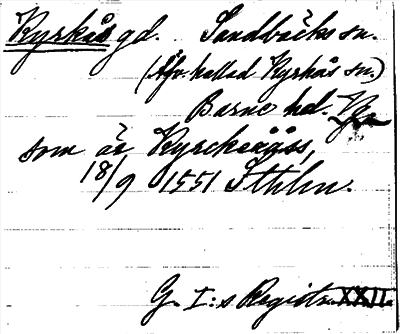 Kyrkås gd. Sandbäcks sn.
(Äv. kallad Kyrkås sn.)
Barne hd. Vg.
som är Kyrckieååss,
18/9 1551 Sthlm.
G. I:s Registr. XXII.